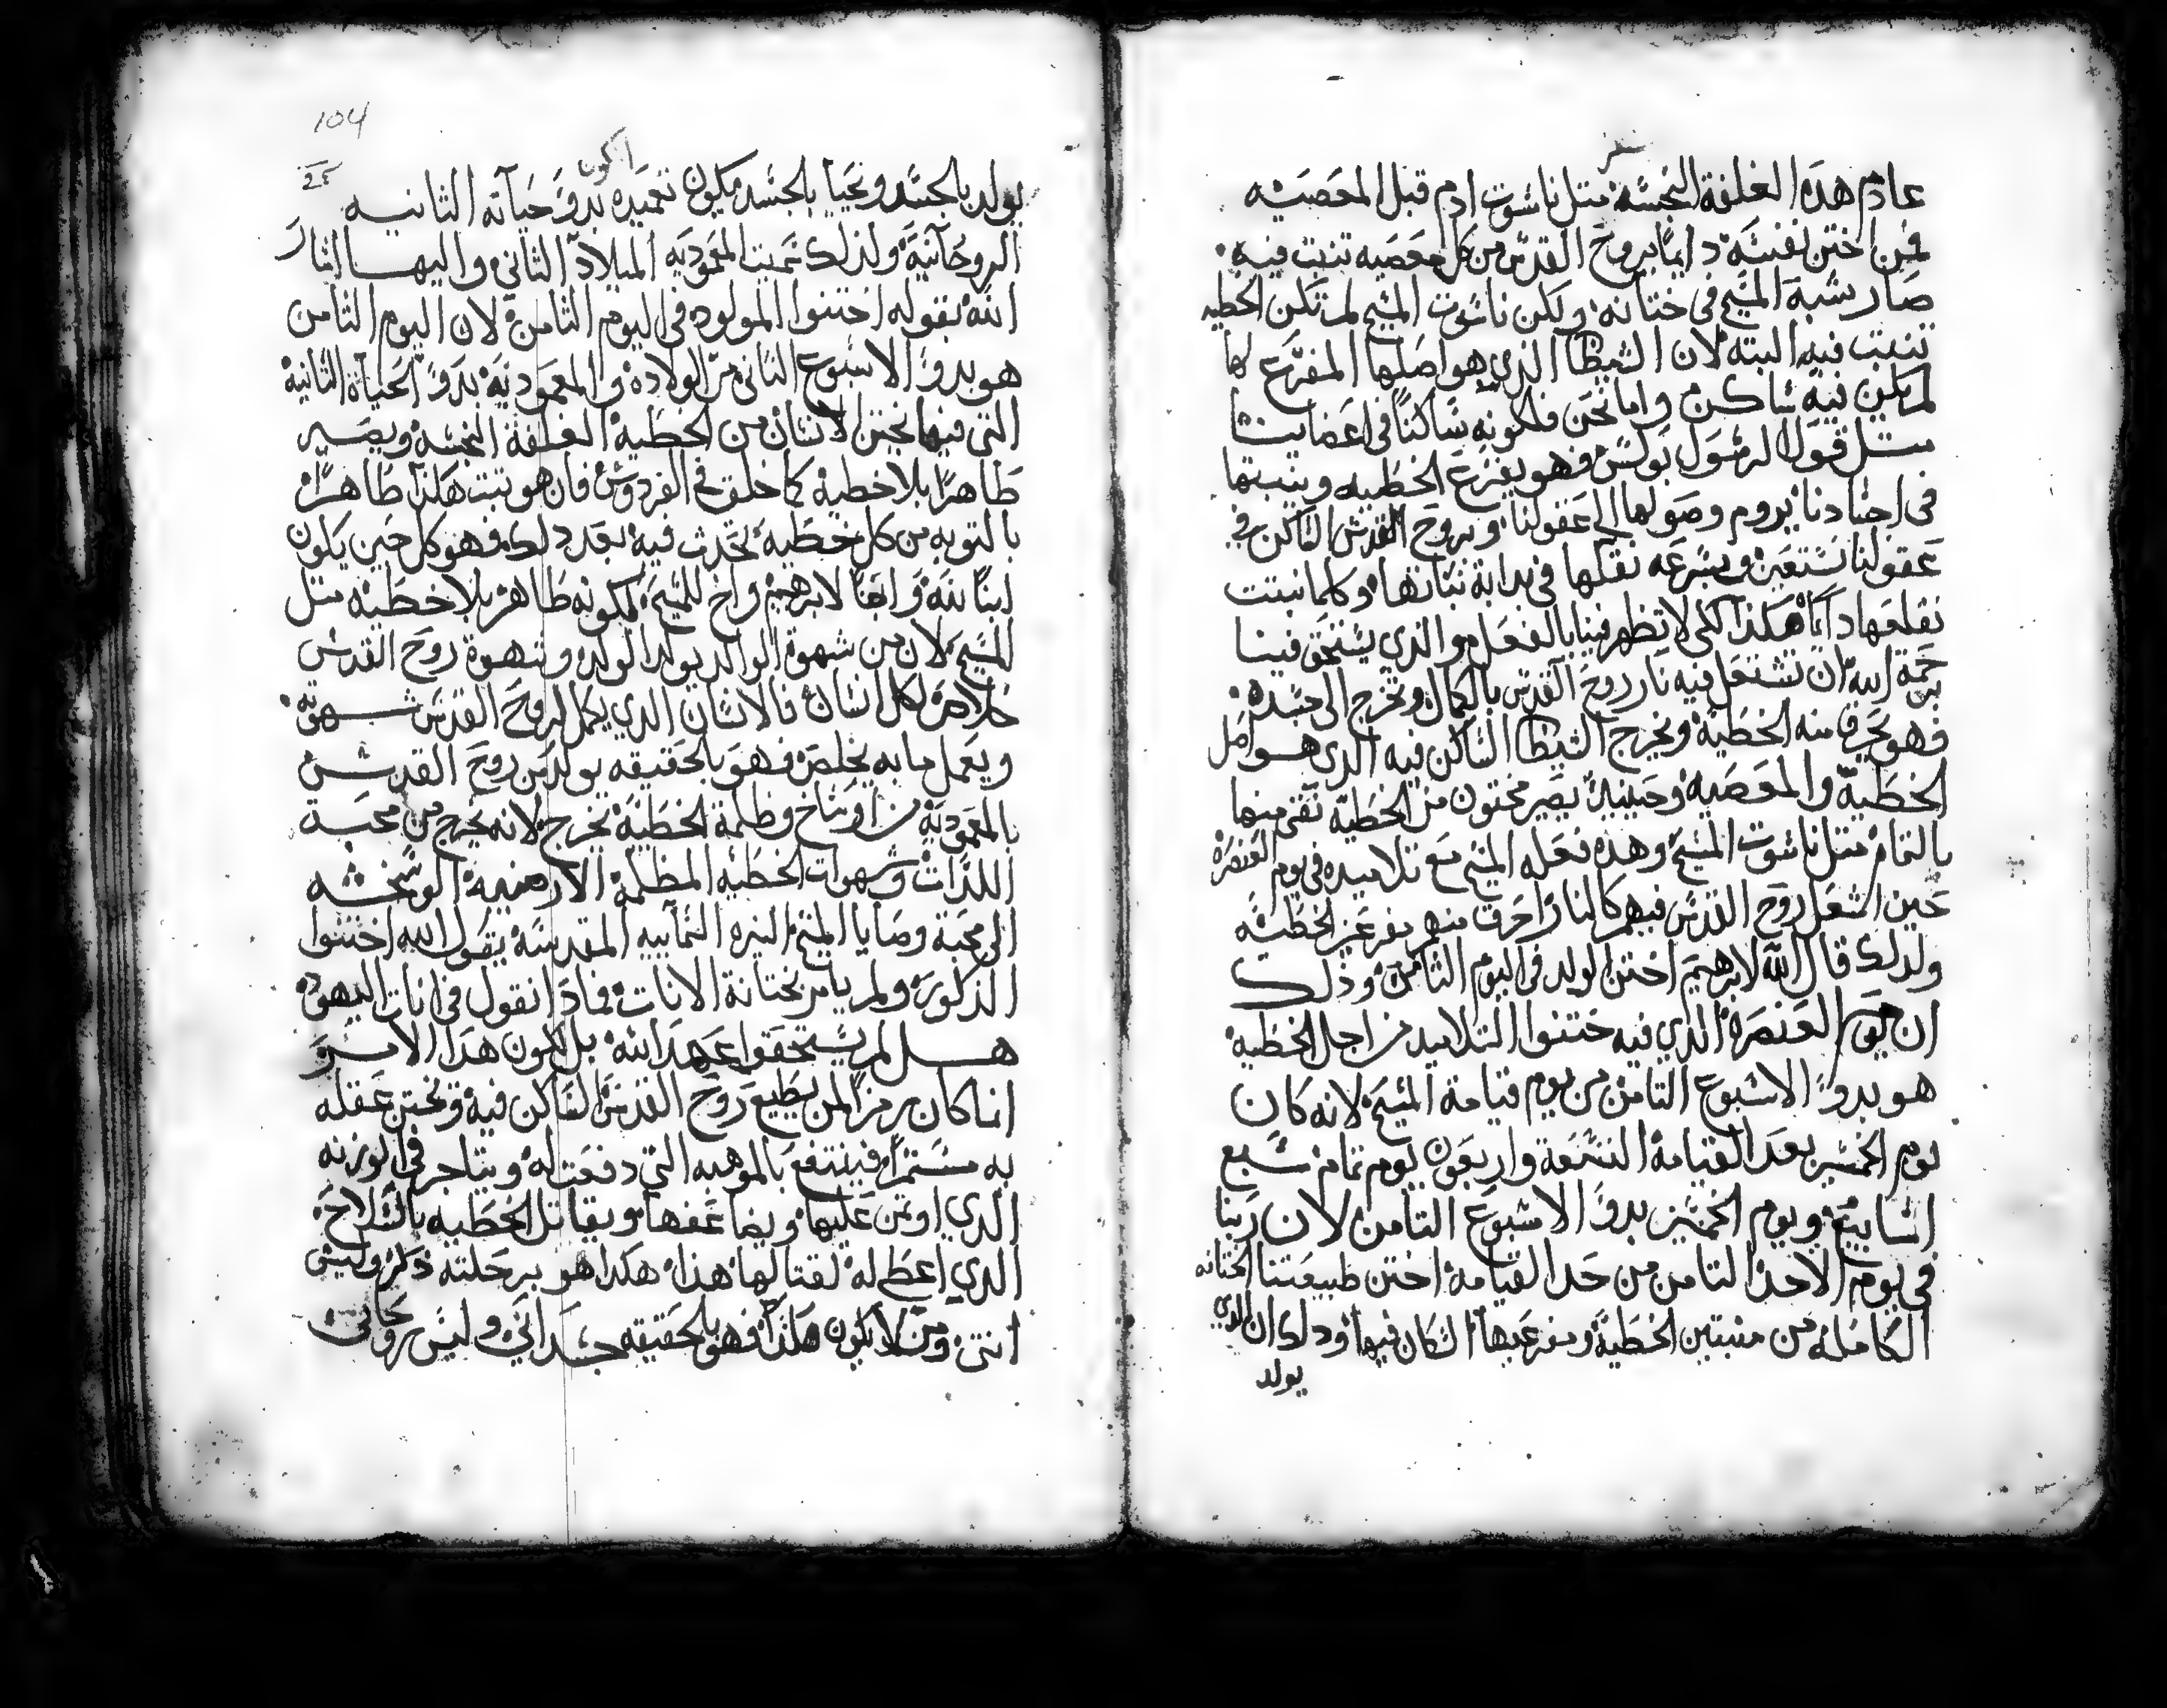 سفر
عادم هذه الغلفة النجسه متل ناسوت ادم قبل المعصيه
فمن اختن نفسه دايمًا بروح القدس من كل معصيه تنبت فيه
صار شبه المسيح في ختانه ولكن ناسوت المسيح لم تكن الخطيه
تنبت فيه البته لان الشيطا الذي هو اصلها المفرع لها
لم يكن فيه ساكن واما نحن فلكونه ساكنًا في اعضاينا
متل قول الرسول بولس فهو يفرع الخطيه وينبتها
في اجسادنا يروم وصولها الي عقولنا وبروح القدس الساكن في
عقولنا نستعين وبسرعه نقلها في بداية نباتها وكلما نبتت
نقلعها دايمًا هكذا لكي لا تظهر فينا بالفعل والذي يستحق فينا
برحمة الله ان تشتعل فيه نار روح القدس بالكمال وتخرج الى جسده
فهو يحرق منه الخطية ويخرج الشيطا الساكن فيه الذي هو اصل
الخطية والمعصيه وحينيد يصير مختون من الخطية نقي منها
بالتمام متل ناسوت المسيح وهده فعله المسيح مع تلاميده في يوم العنصره
حين اشتعل روح القدس فيهم كالنار احرق منهم مفرعين الخطيه
ولدلك قال الله لابرهيم اختن الولد في اليوم الثامن وذلك
ان يوم العنصرة الذي فيه ختنوا التلاميد من اجل الخطية
هو بدو الاسبوع التامن من يوم قيامة المسيح لانه كان
يوم الخمسين بعد القيامة التسعة واربعون يوم تمام سبع
اسابيع ويوم الخمسين بدو الاسبوع التامن لان ربنا
في يوم الاحد التامن من حد القيامة اختن طبيعتنا الختانه
الكاملة من منبتين الخطية ومفرعيها السكان فيها ودلك ان الذي
يولد
104
اكون
يولد بالجسد ونحيا بالجسد ميكون تعميده بدو حياته الثانيه
الروحانية ولذلك سميت المعموديه الميلاد الثاني واليها اشار
الله بقوله اختنوا المولود في اليوم الثامن لان اليوم الثامن
هو بدو الاسبوع الثاني من الولاده والمعموديه بدو الحياة الثانية
التي فيها يختن الانسان من الخطية الغلفة النجسه ويصير
طاهرًا بلا خطية كما خلق في الفردوس فان هو تبت هكذا طاهرًا
بالتوبه من كل خطية تحدث فيه بعد دلك فهو كل حين يكون
ابنًا لله وابنًا لابرهيم واخ للمسيح لكونه طاهر بلا خطية متل
المسيح لان من شهوة الوالد يولد الولد وشهوة روح القدس
خلاص لكل انسان فالانسان الدي يكمل لروح القدس شهوته
ويعمل ما به يخلص فهو بالحقيقه يولد من روح القدس
بالمعموديه من اوساخ وظلمة الخطية يخرج لانه يخرج من محبة
اللذات وشهوات الخطيه المظلمة الارضيه الوسخه
الى محبة وصايا المسيح النيره السماييه المقدسه يقول الله اختنوا
الذكور ولم يامر بختانة الانات فمادا نقول في انات اليهود
هل لم يستحقوا عهد الله بل لكون هذا الامر
انما كان رمزًا لمن يطيع روح القدس الساكن فيه ويختن عقله
به مستمرًا فينتفع بالموهبه التي دفعت له ويتاجر في الوزنه
الدي اوتمن عليها ويضاعفها ويقاتل الخطيه بالسلاح
الدي اعطي له لقتالها هذا هكدا هو برجلته ذكر وليس
انتى ومن لا يكون هكذا فهو بالحقيقه جسداني وليس روحاني